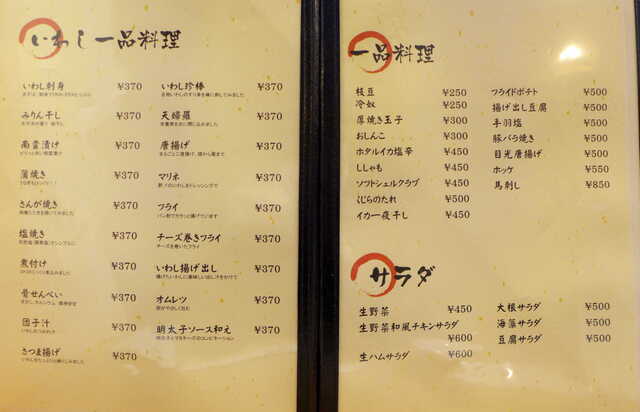 いわし一品料理
いわし刺身 ¥370
みりん干し ¥370
南蛮漬け ¥370
蒲焼き ¥370
さんが焼き ¥370
塩焼き ¥370
煮付け ¥370
骨せんべい ¥370
団子汁 ¥370
さつま揚げ ¥370
いわし珍棒 ¥370
天婦羅 ¥370
唐揚げ ¥370
マリネ ¥370
フライ ¥370
パン粉でカラッと揚げています
チーズ巻きフライ ¥370
チーズを巻いたフライ
いわし揚げ出し ¥370
オムレツ ¥370
明太子ソース和え ¥370
一品料理
枝豆 ¥250
冷奴 ¥250
厚焼き玉子 ¥300
おしんこ ¥300
ホタルイカ塩辛 ¥450
ししゃも ¥450
ソフトシェルクラブ ¥450
くじらのたれ ¥500
イカ一夜干し ¥450
フライドポテト ¥500
揚げ出し豆腐 ¥500
手羽塩 ¥500
豚バラ焼き ¥500
目光唐揚げ ¥500
ホッケ ¥550
馬刺し ¥850
サラダ
生野菜 ¥450
生野菜和風チキンサラダ
¥600
生ハムサラダ ¥600
大根サラダ ¥500
海藻サラダ ¥500
豆腐サラダ ¥500